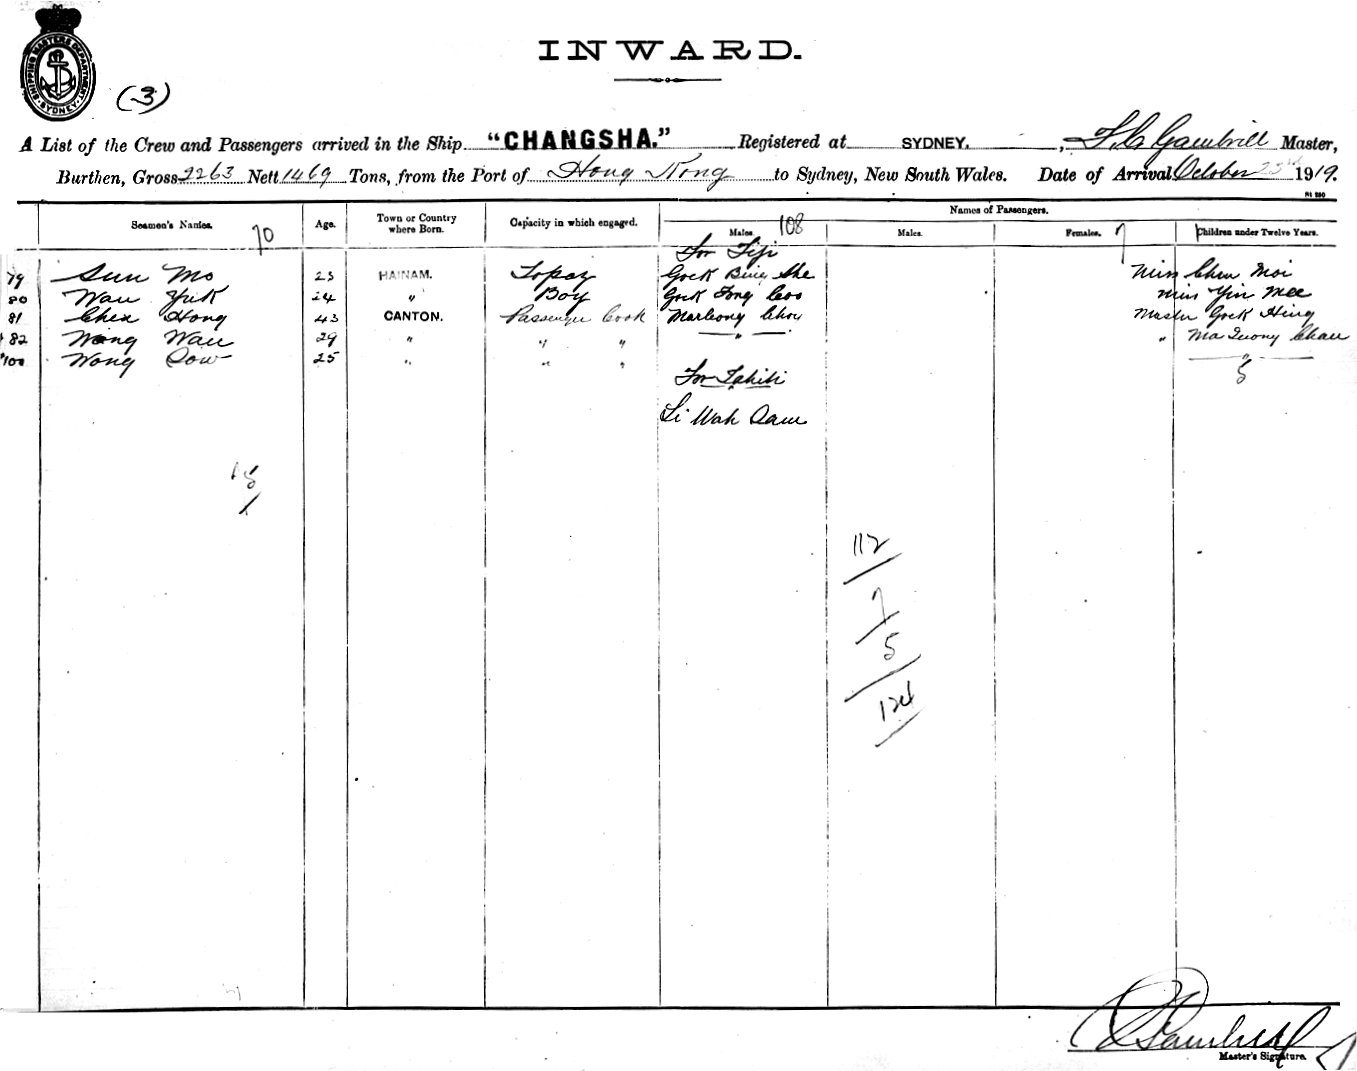 INWARD.
SHIPPING MASTERS DEPARTMENT SYDNEY
(3)
A List of the Crew and Passengers arrived in the Ship "CHANGSHA." Registered at SYDNEY. , Gambrill Master,
Burthen, Gross 2263 Nett 1469 Tons, from the Port of Hong Kong to Sydney, New South Wales. Date of Arrival October 23rd 1919.
Names of Passengers.
Seamen's Names. 70 Age. Town or Country where Born. Capacity in which engaged. Males. 108 Males. Females. 7 Children under Twelve Years.
For Fiji
79 Sun Mo 23 HAINAM. Topaz Gock Bing She Miss Chew Moi
80 Wau Yuk 24 " Boy Gock Fong Coo Miss Yin Mee
81 Chea Hong 43 CANTON. Passenger Cook Marleong Chou Master Gock Hing
82 Wong Wau 29 " " " " " Ma Chau
100 Wong Sow 25 " " " "
For Tahiti 5
Li Wah Sam
5
112
7
5
124
Gambrill
Master's Signature.